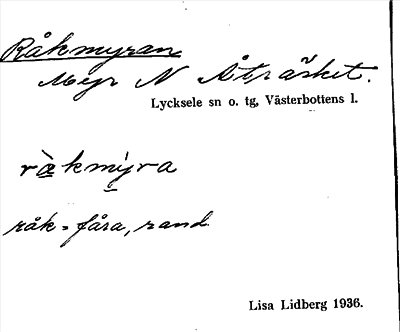 Råkmyran
Myr N Åträsket.
Lycksele sn o. tg, Västerbottens l.
ràkmyra
råk = fåra, rand
Lisa Lidberg 1936.